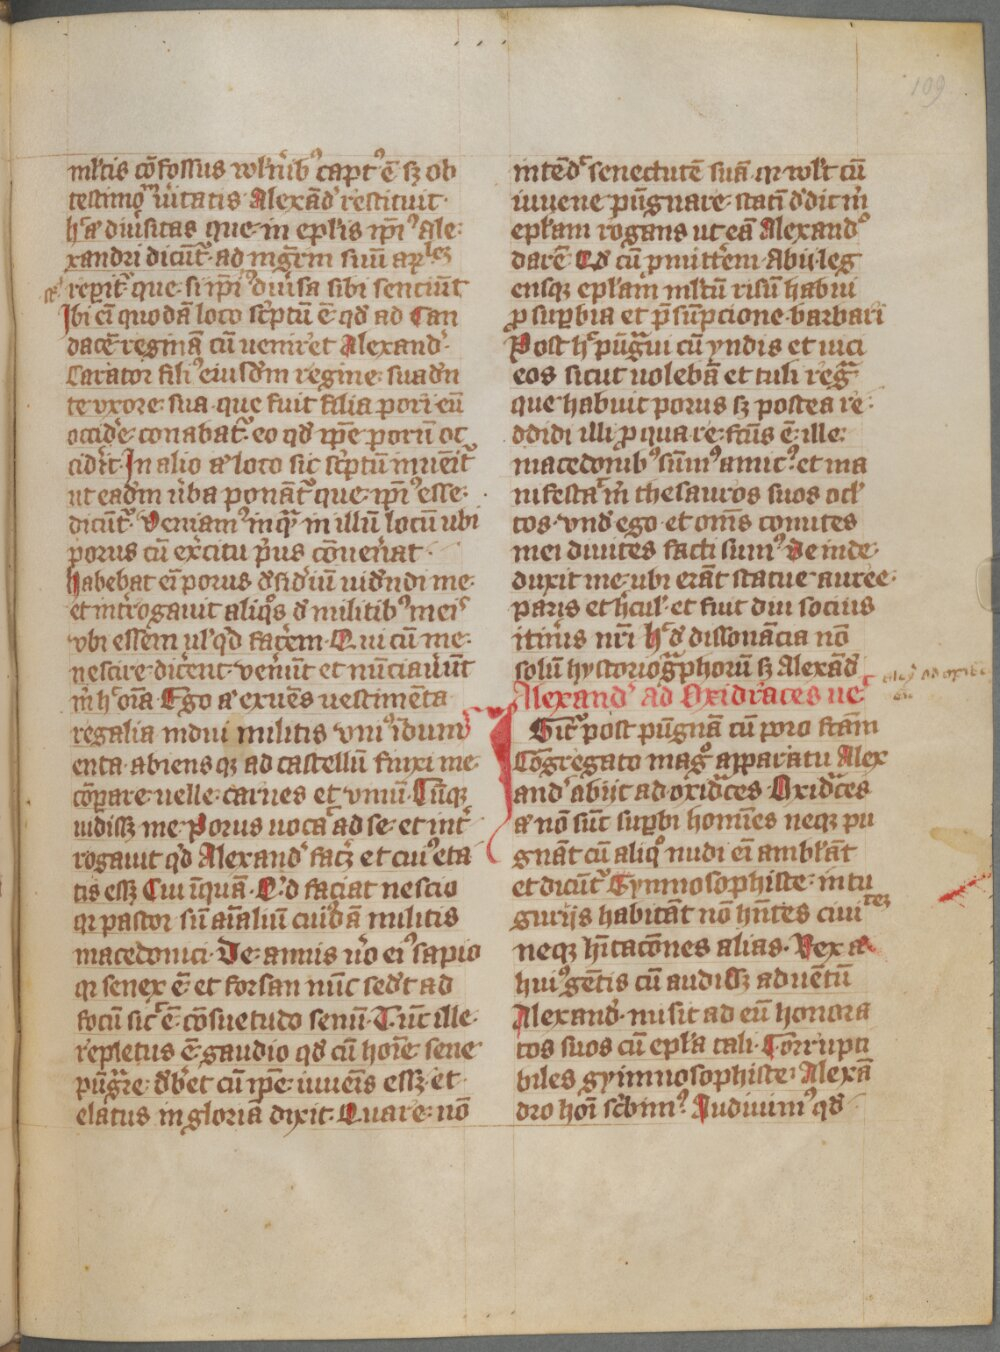 ml̅tis cōfossus vul̅n̅ib⁹ capt⁹ ē sꝫ ob
testimoniū ūitatis Alexāđ restituit·
h̄ ā diūsitas que in ep̄l̅is ip̄i⁹ Ale
xandri dicūt̄ ad mgr̄m suū ar̄leꝫ
rep̄it̄ que si ip̄i⁹ diūsa sibi senciūt
Ibi eī quodā loco sc̄ptū ē qđ ad Can
dacē reginā cū veniret Alexanđ·
Carator fili⁹ eiusđm regine suađn
te vxore sua que fuit filia pori eū
occiđe conabat̄ eo qđ ip̄e porū oc
ciđit In alio ā loco sic sc̄ptū inuēit̄
ut eađm ūba ponāt̄ que ip̄i⁹ esse
dicūt̄ Veniam⁹ inq̄ in illū locū ubi
porus cū ex̄citu p̄us cōuen̄at
habebat eī porus đsiđiū uiđndi me
et int̄rogauit aliqͦs đ militib⁹ meis
vbi essem ul̅ qđ fac̄em Qui cū me
nescire dic̄ent ven̄iūt et nūciaūūt
m̄ h̄ oīa Ego ā exuēs uestimēta
regalia indui militis vni⁹ īdum
enta abiensqꝫ ad castellū finxi me
cōpare uelle carnes et vinū Cūqꝫ
uidissꝫ me Porus uocāͣ ad se et int̄
rogauit qͥd Alexanđ fac̄ꝫ et cui⁹ eta
tis essꝫ Cui īquā Qͥd faciat nescio
qr pastor sū aīaliū cui⁹dā militis
macedonici De annis ūo ei⁹ sapio
qr senex ē et forsan nūc seđt ad
focū sicͭ ē cōsuetudo senū Tūc ille
repletus ē gaudio qđ cū hoīe sene
pūgre đbet cū ip̄e iuuēis essꝫ et
elatus in gloriā dixit Quare nō
intēđ senectutē suā qr vul̅t cū
iuuene pūgnare statī đdit m̄
ep̄l̅am rogans ut eā Alexanđ
darē Qđ cū p̄mitt̄em Abii leg
ensqꝫ ep̄l̅am ml̅tū risū habui
p̄ sup̄bia et p̄sūpcione barbari
Post h̄ pūgͣui cū yndis et uici
eos sicut uolebā et tuli regͣ
que habuit porus sꝫ postea re
đdidi illi p̄ qua re fcūs ē ille
macedonib⁹ sūm⁹ amic⁹ et ma
nifestaͭ m̄ thesauros suos ocl̅
tos vnđ ego et om̄s comites
mei diuites facti sum⁹ De inde
duxit me ubi erāt statue auree
p̄aris et h̄cul̅ et fuit diu socius
itin̄is nr̄i H̄ đ dissonācia nō
solū hystoriogͣphorū sꝫ Alexāđ
Alexanđ ad Oxidraces ue
Igit̄ post pūgnā cū poro fcām
Cōgregato magͦ apparatu Alex
anđ abijt ad oxiđces Oxiđces
ā nō sūt sup̄bi homīes neqꝫ pu
gnāt cū aliqͦ nudi eī ambl̅āt
et dicūt̄ Gymnosophiste in tu
gurijs habitāt nō hn̄tes ciuitꝫ
neqꝫ hītacōnes alias Rex ā
hui⁹ gētis cū audissꝫ aduētū
Alexanđ misit ad eū honora
tos suos cū ep̄l̅a tali Corrupti
biles gyimnosophiste Alexā
dro hoī sc̄bim⁹ Audiuim⁹ qđ